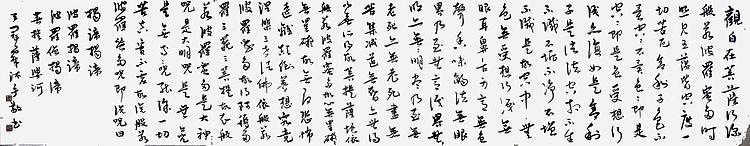 觀自在菩薩行深
般若波羅蜜多時
照見五蘊皆空度一
切苦厄舍利子色不
異空空不異色色即是
空空即是色受想行
識亦復如是舍利
子是諸法空相不生
不滅不垢不淨不增
不減是故空中無
色無受想行識無
眼耳鼻舌身意無色
聲香味觸法無眼
界乃至無意識界無
無明亦無無明盡乃至無
老死亦無老死盡無
苦集滅道無智亦無得
以無所得故菩提薩埵依
般若波羅蜜多故心無罣
礙無罣礙故無有恐怖
遠離顛倒夢想究竟
涅槃三世諸佛依般若
波羅蜜多故得阿耨多
羅三藐三菩提故知般
若波羅蜜多是大神
咒是大明咒是無上
咒是無等等咒能除一切
苦真實不虛故說般若
波羅蜜多咒即說咒曰
揭諦揭諦
波羅揭諦
波羅僧揭諦
菩提薩婆訶